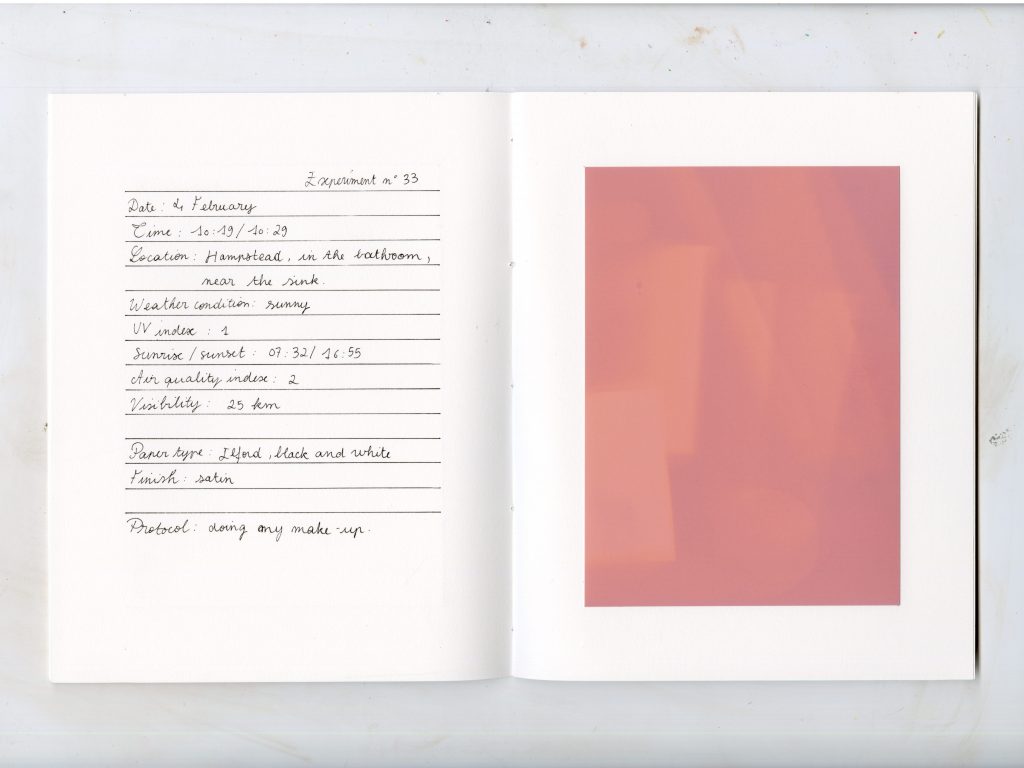 Experiment n° 33
Date : 4 February
Time : 10:19/10:29
Location : Hampstead, in the bathroom,
near the sink.
Weather condition: sunny
UV index : 1
Sunrise / sunset : 07:32/ 16:55
Air quality index : 2
Visibility : 25 km
Paper type : Ilford, black and white
Finish : satin
Protocol : doing my make-up.